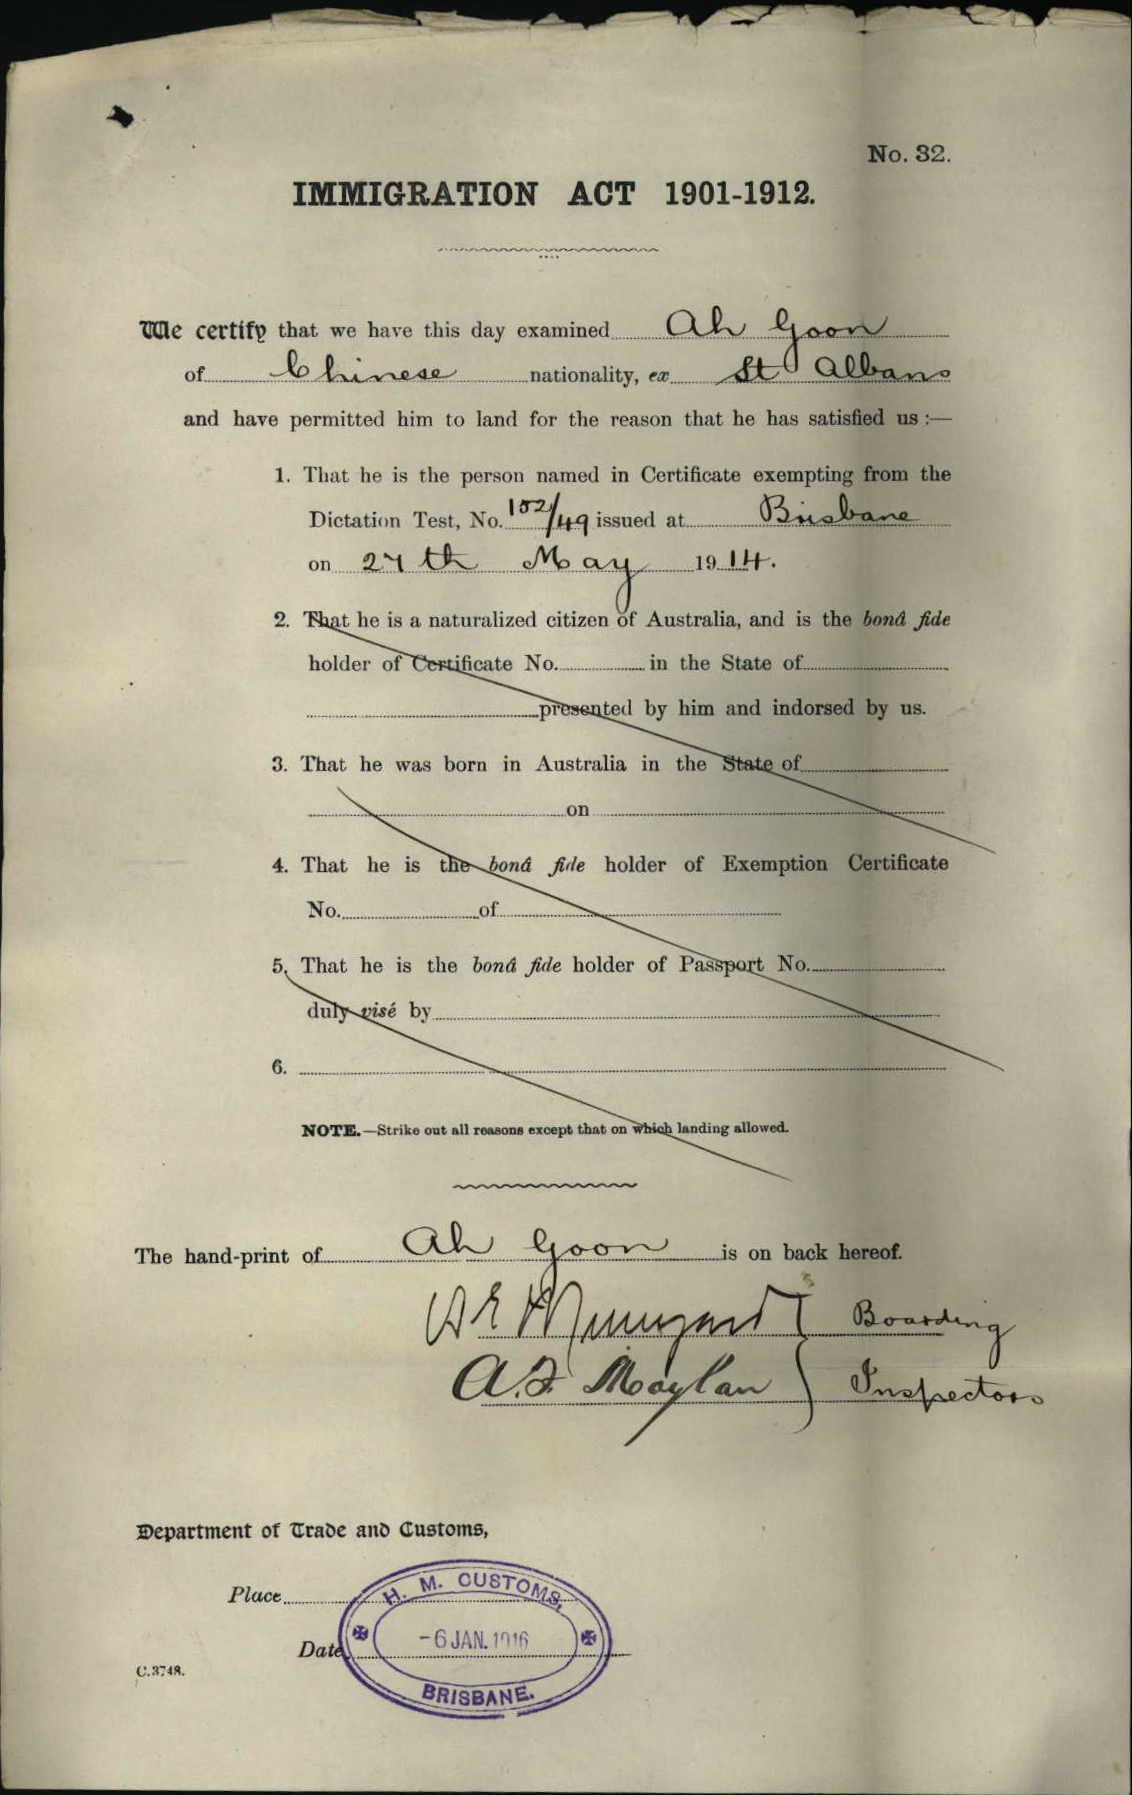 No. 32.
IMMIGRATION ACT 1901-1912.
We certify that we have this day examined Ah Goon
of Chinese nationality, ex St Albans
and have permitted him to land for the reason that he has satisfied us :—
1. That he is the person named in Certificate exempting from the
Dictation Test, No. 152/49 issued at Brisbane
on 27th May 1914.
2. That he is a naturalized citizen of Australia, and is the bonâ fide
holder of Certificate No. in the State of
presented by him and indorsed by us.
3. That he was born in Australia in the State of
on
4. That he is the bonâ fide holder of Exemption Certificate
No. of
5. That he is the bonâ fide holder of Passport No.
duly visé by
6.
NOTE.—Strike out all reasons except that on which landing allowed.
The hand-print of Ah Goon is on back hereof.
Boarding
A.F. Moylan Inspectors
Department of Trade and Customs,
Place
H. M. CUSTOMS,
Date -6 JAN. 1916
BRISBANE.
C.3748.